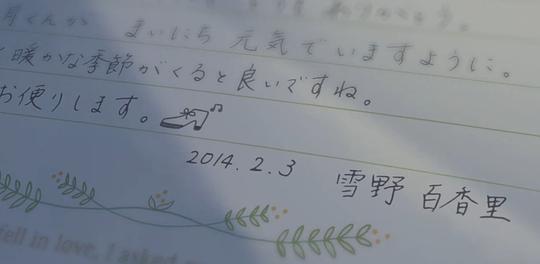 まいにち 元気でいますように。
暖かな季節がくると良いですね。
お便りします。
2014.2.3 雪野 百香里
fell in love, I asked